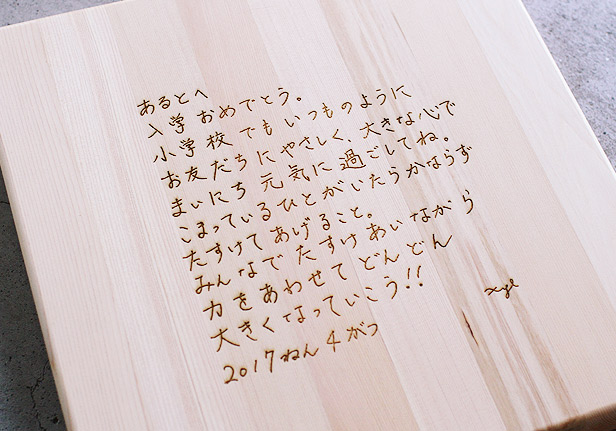 あるとへ
入学おめでとう。
小学校でもいつものように
お友だちにやさしく、大きな心で
まいにち元気に過ごしてね。
こまっているひとがいたらかならず
たすけてあげること。
みんなでたすけあいながら
力をあわせてどんどん
大きくなっていこう!!
2017ねん4がつ